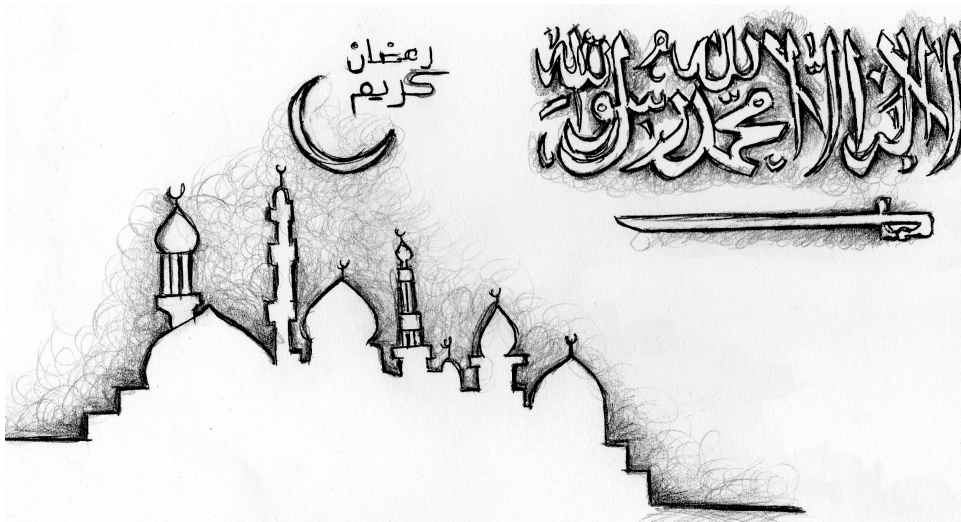 رمضان
كريم
لا إله إلا الله محمد رسول الله